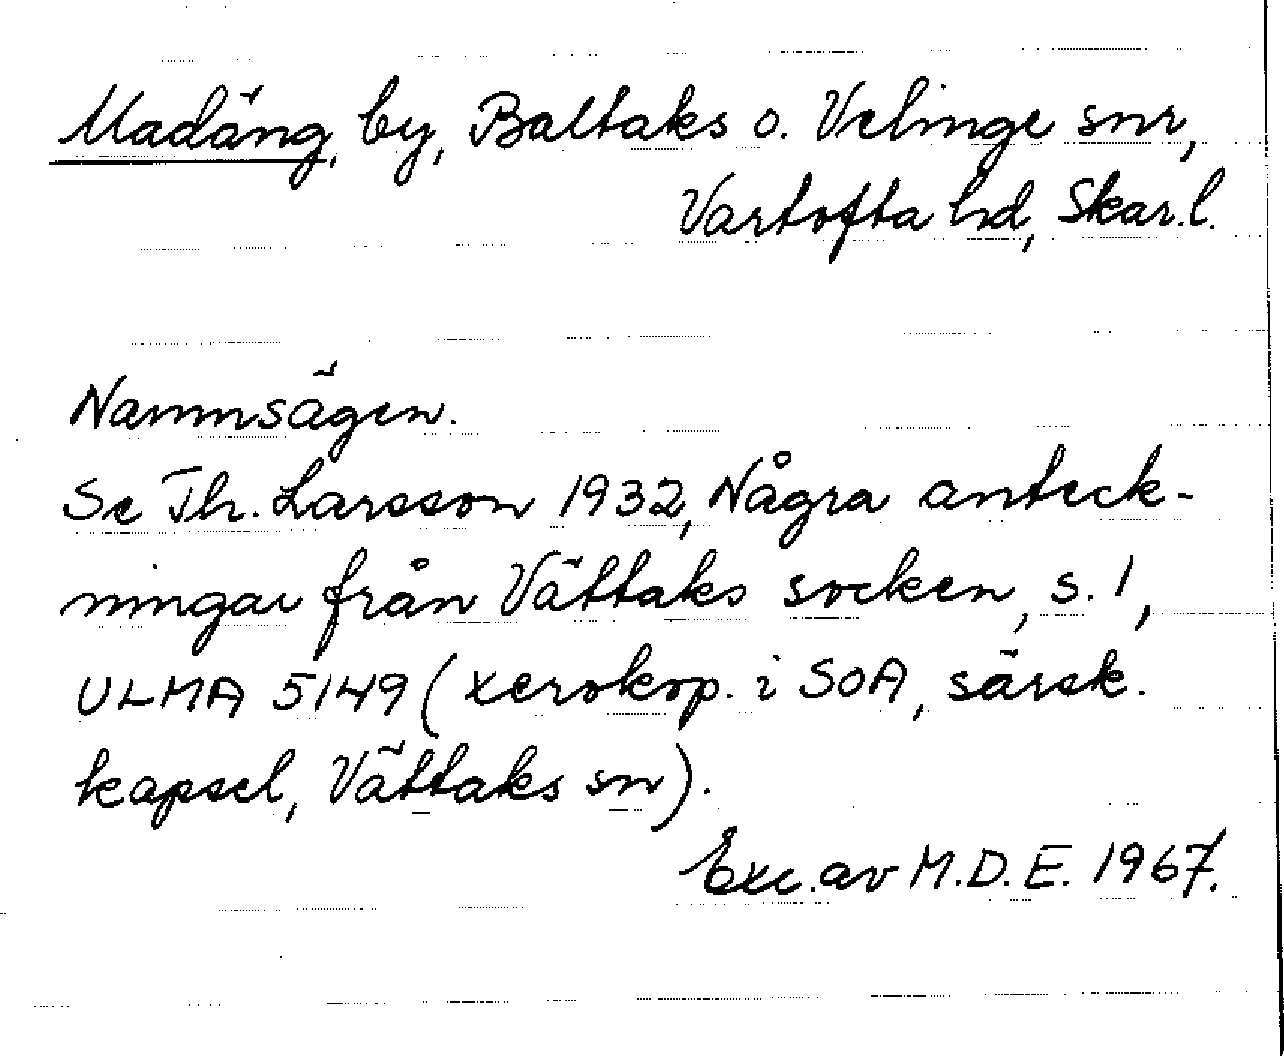 Madäng, by, Baltaks o. Velinge snr,
Vartofta hd, Skar.l.
Namnsägen.
Se Th. Larsson 1932, Några anteck-
ningar från Vättaks socken, s. 1,
ULMA 5149 (xerokop. i SOA, särsk.
kapsel, Vättaks sn).
Exc. av M.D.E. 1967.